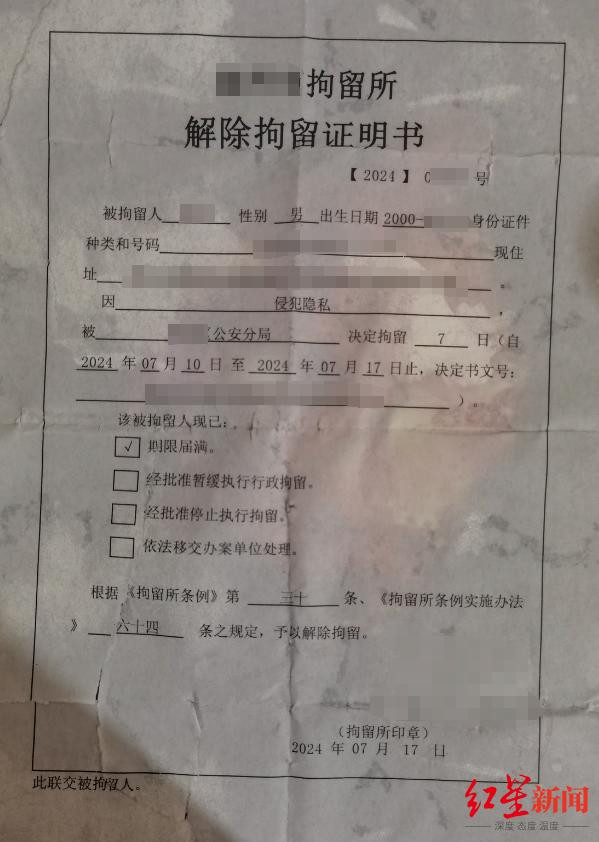 拘留所
解除拘留证明书
【 2024 】 0 号
被拘留人 性别 男 出生日期 2000- 身份证件
种类和号码 现住
址 。
因 侵犯隐私 ，
被 公安分局 决定拘留 7 日（自
2024 年 07 月 10 日 至 2024 年 07 月 17 日止，决定书文号：
）。
该被拘留人现已：
√ 期限届满。
经批准暂缓执行行政拘留。
经批准停止执行拘留。
依法移交办案单位处理。
根据《拘留所条例》第 三十 条、《拘留所条例实施办法
》 六十四 条之规定，予以解除拘留。
（拘留所印章）
2024 年 07 月 17 日
此联交被拘留人。
红星新闻
深度 态度 温度